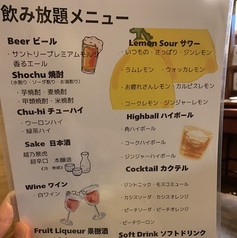 飲み放題メニュー
Beer ビール
・サントリープレミアムモルツ
香るエール
Shochu 焼酎
(水割り・ソーダ割り・お湯割り)
・芋焼酎・麦焼酎
・甲類焼酎・米焼酎
Chu-hi チューハイ
・ウーロンハイ
・緑茶ハイ
Sake 日本酒
越乃景虎
超辛口 本醸造
Wine ワイン
白ワイン
Fruit Liqueur 果樹酒
Lemon Sour サワー
・いつもの・さっぱり・ジンレモン
・ラムレモン ・ウォッカレモン
・お疲れさんレモン・カルピスレモン
・コークレモン・ジンジャーレモン
Highball ハイボール
・角ハイボール
・コークハイボール
・ジンジャーハイボール
Cocktail カクテル
・ジントニック・モスコミュール
・カシスソーダ・カシスオレンジ
・ピーチソーダ・ピーチオレンジ
・ピーチウーロン
Soft Drink ソフトドリンク